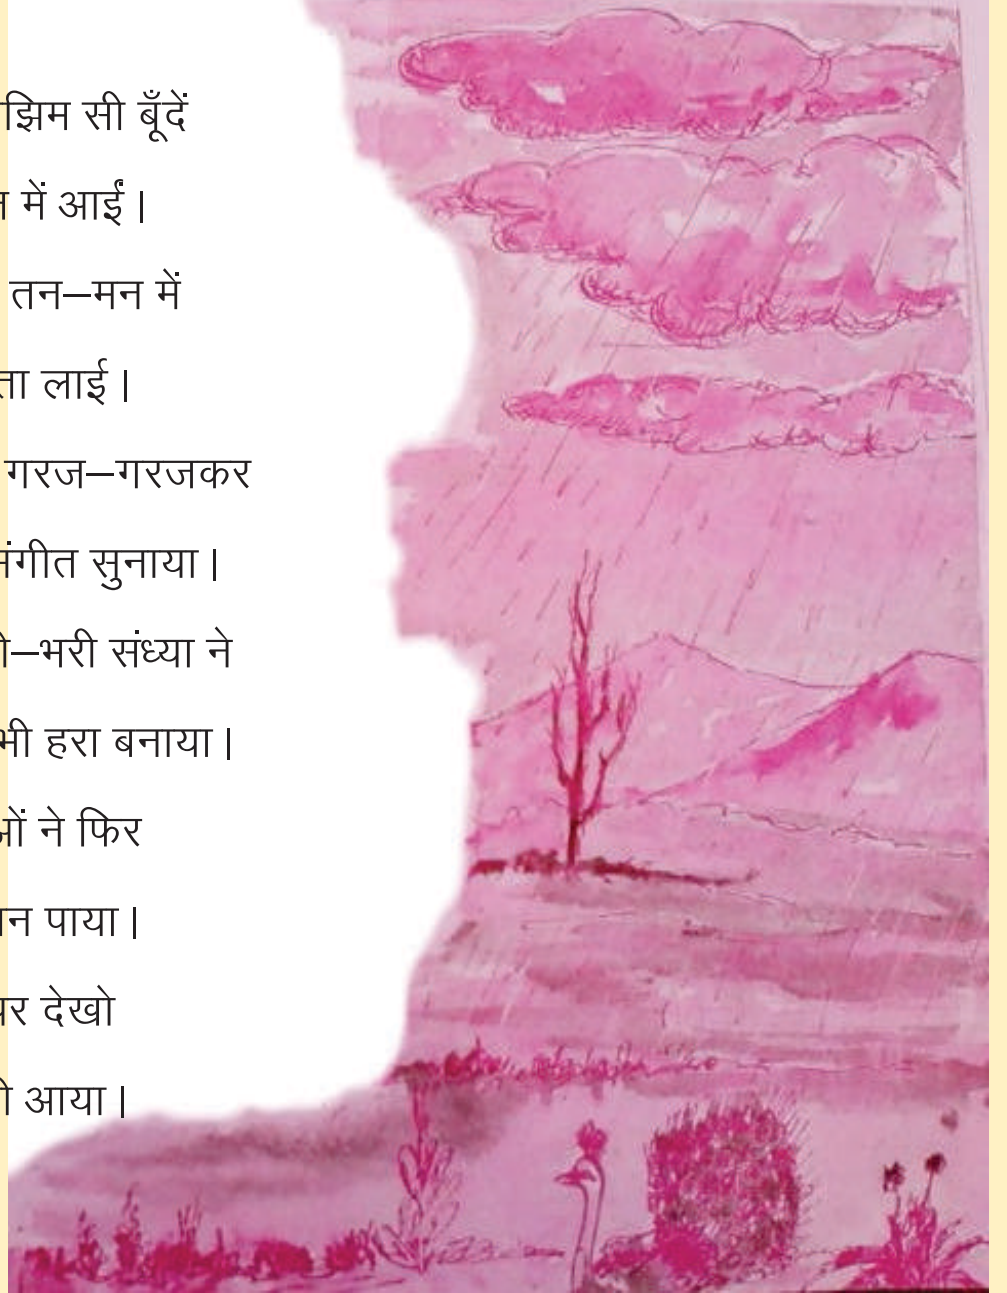 झिम सी बूँदें
में आईं।
तन–मन में
ता लाई।
गरज–गरजकर
संगीत सुनाया।
–भरी संध्या ने
भी हरा बनाया।
ओं ने फिर
न पाया।
पर देखो
आया।